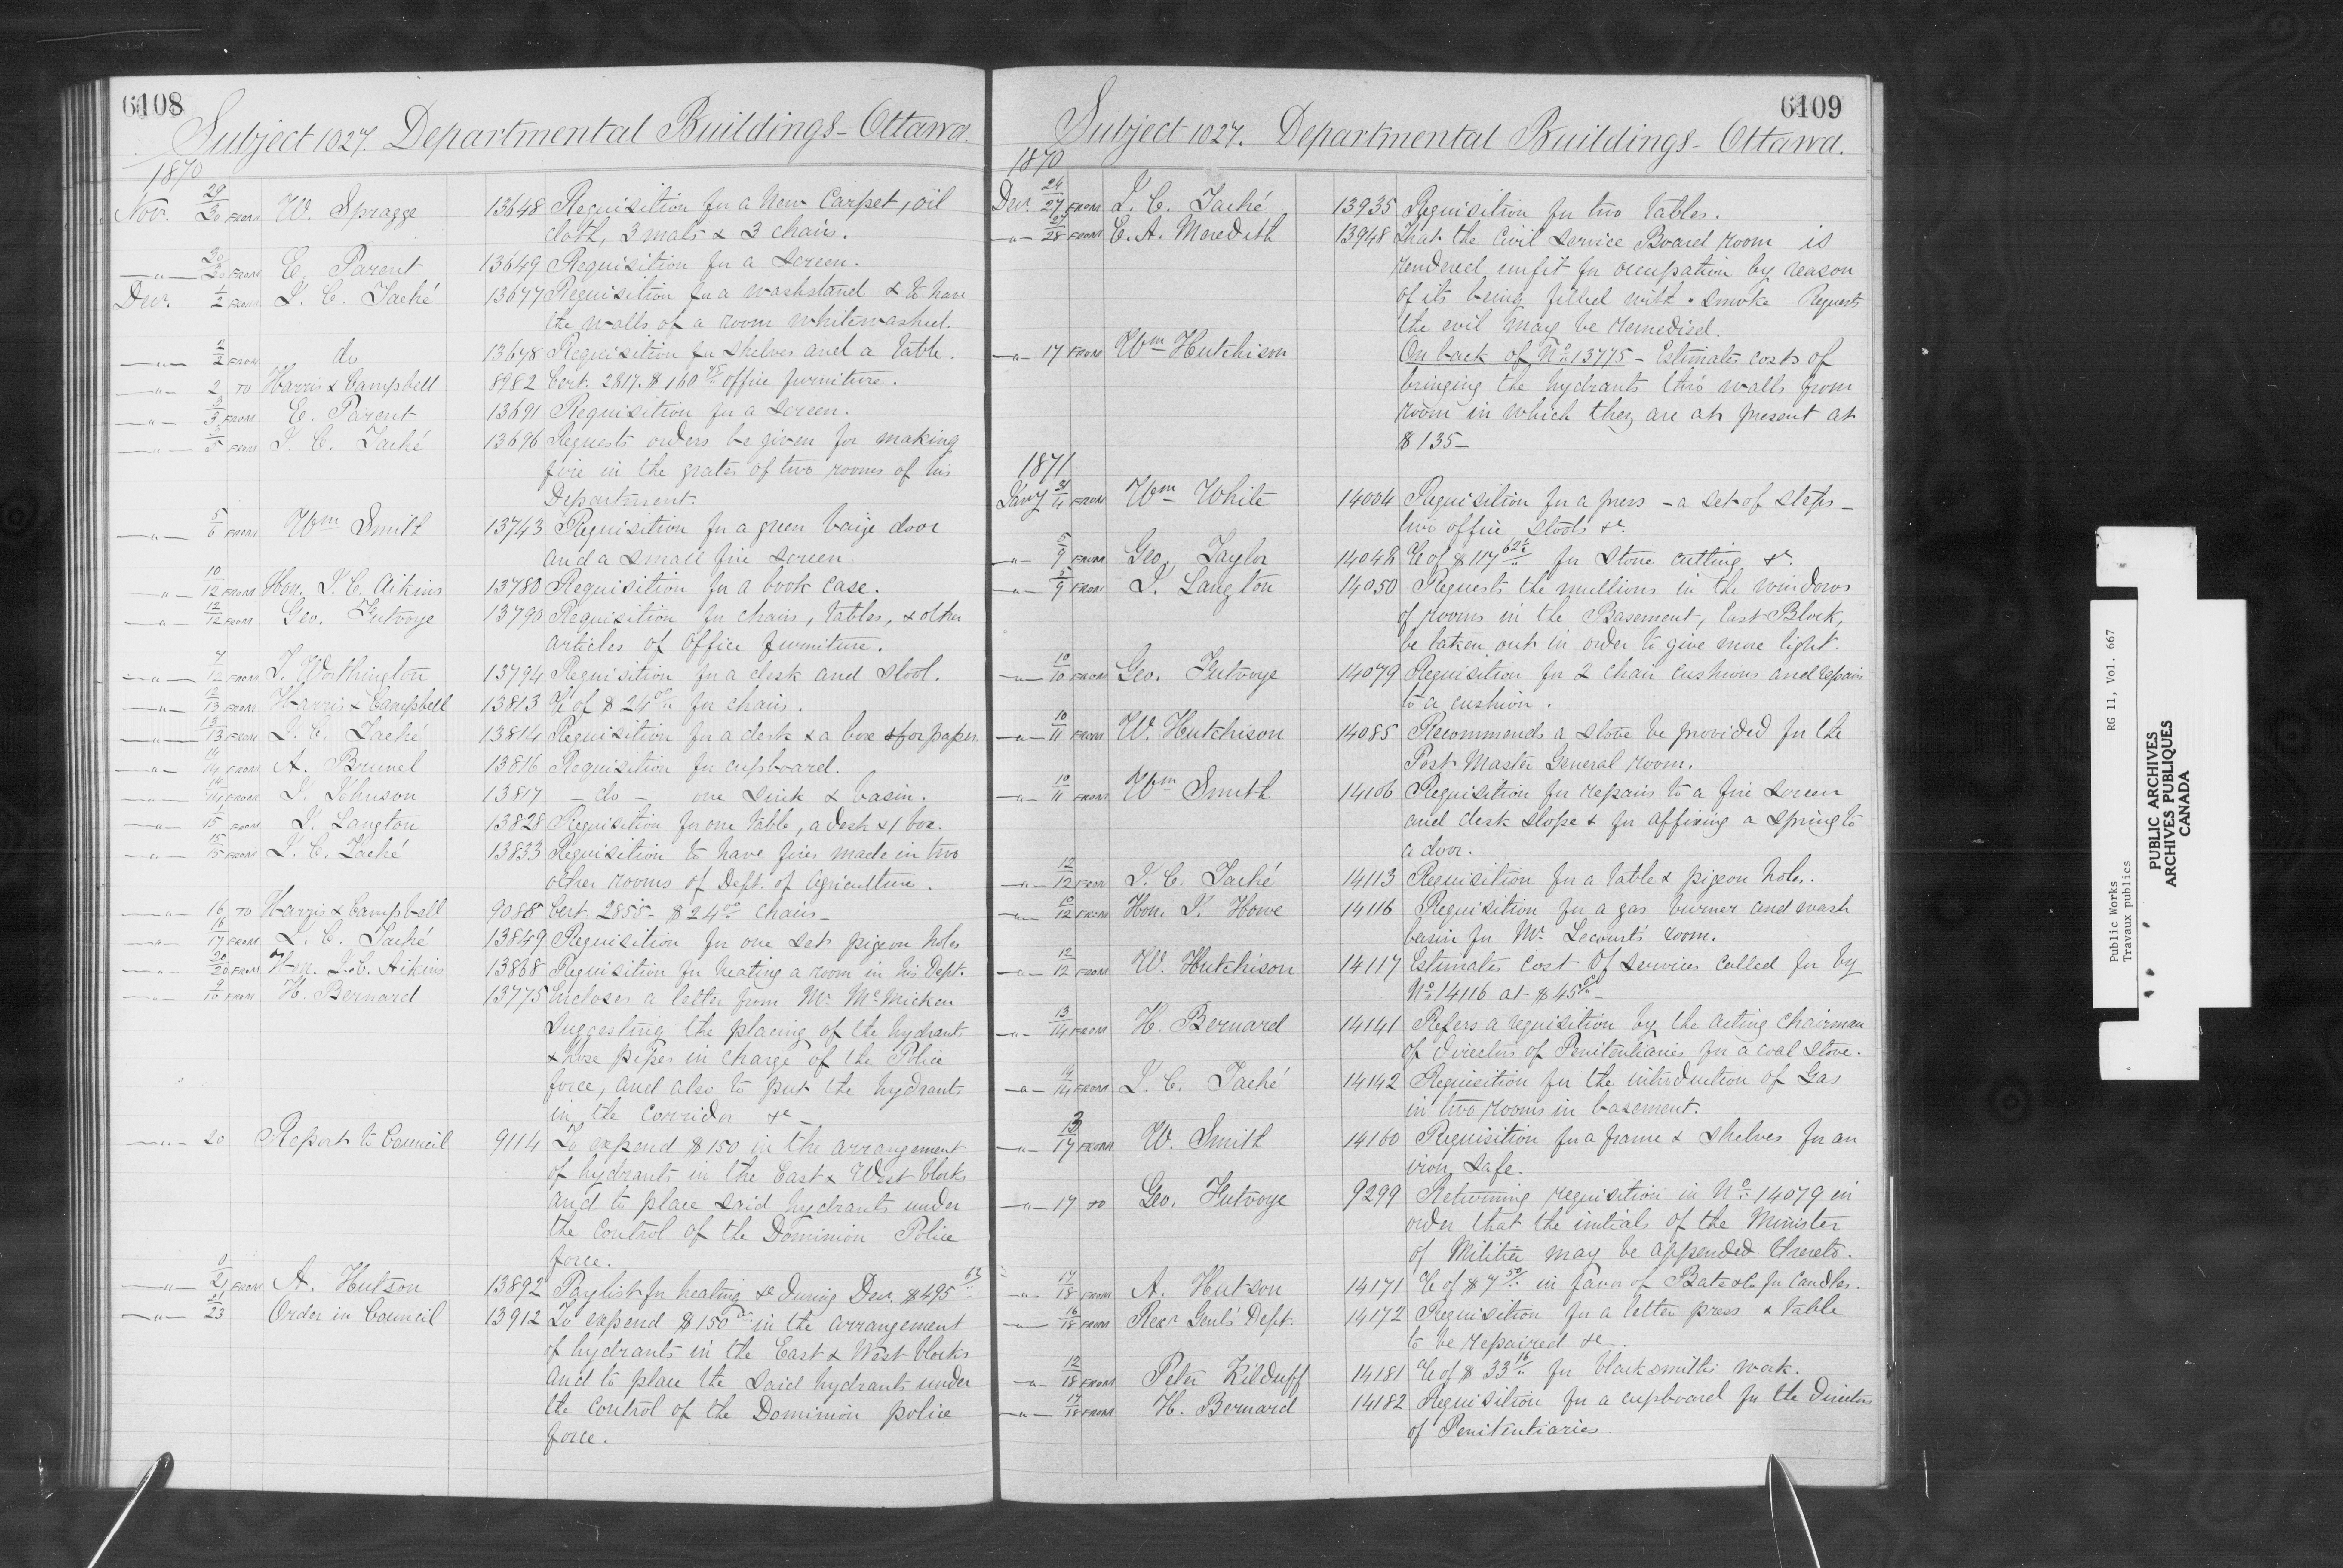 6108
Subject 1027. Departmental Buildings - Ottawa.
1870
Nov. 29/30 FROM W. Spragge 13648 Requisition for a New Carpet, oil
cloth, 3 mats & 3 chairs.
-"- 30/30 FROM E. Parent 13649 Requisition for a Screen.
Decr. 1/2 FROM J. C. Taché 13677 Requisition for a washstand & to have
the walls of a room whitewashed.
-"- 2/2 FROM do 13678 Requisition for shelves and a table.
-"- 2 TO Harris & Campbell 8982 Cert. 2817. $160 75 office furniture.
-"- 3/3 FROM E. Parent 13691 Requisition for a Screen.
-"- 5 FROM J. C. Taché 13696 Requests orders be given for making
fire in the grates of two rooms of his
Department.
-"- 5/6 FROM Wm Smith 13743 Requisition for a green baize door
and a small fire screen
-"- 10/12 FROM Hon. J. C. Aikins 13780 Requisition for a book case.
-"- 12/12 FROM Geo. Futvoye 13790 Requisition for chairs, tables, & other
articles of Office furniture.
-"- 7/12 FROM J. Worthington 13794 Requisition for a desk and stool.
-"- 12/13 FROM Harris & Campbell 13813 a/c of $24 00 for chairs.
-"- 13/13 FROM J. C. Taché 13814 Requisition for a desk & a box for paper.
-"- 14/14 FROM A. Brunel 13816 Requisition for cupboard.
-"- 14/14 FROM J. Johnson 13817 - do - one Sink & basin.
-"- 15 FROM J. Langton 13828 Requisition for one table, a desk & 1 box.
-"- 15/15 FROM J. C. Taché 13833 Requisition to have fires made in two
other rooms of Dept. of Agriculture.
-"- 16 TO Harris & Campbell 9088 Cert. 2855 - $24 00 Chairs -
-"- 16/17 FROM J. C. Taché 13849 Requisition for one set pigeon holes.
-"- 20/20 FROM Hon. J. C. Aikins 13868 Requisition for heating a room in his Dept.
-"- 9/10 FROM H. Bernard 13775 Encloses a letter from Mr. McMicken
suggesting the placing of the hydrants
& hose pipes in charge of the Police
force, and also to put the hydrants
in the corridor &c -
-"- 20 Report to Council 9114 To expend $150 in the arrangement
of hydrants in the East & West blocks
and to place said hydrants under
the control of the Dominion Police
force.
-"- 21 FROM A. Hutson 13892 Paylist for heating &c during Dec. $495
-"- 21/23 Order in Council 13912 To expend $150 in the arrangement
of hydrants in the East & West blocks
and to place the said hydrants under
the control of the Dominion police
force.
6109
Subject 1027. Departmental Buildings - Ottawa.
1870
Decr. 24/27 FROM J. C. Taché 13935 Requisition for two tables.
-"- 27/28 FROM E. A. Meredith 13948 That the Civil Service Board room is
rendered unfit for occupation by reason
of its being filled with smoke Requests
the evil may be remedied.
-"- 17 FROM Wm Hutchison On back of No. 13775 - Estimates costs of
bringing the hydrants thro' walls from
room in which they are at present at
$135 -
1871
Jany 31/4 FROM Wm White 14004 Requisition for a press - a set of steps -
two office stools &c.
-"- 5/9 FROM Geo. Taylor 14048 a/c of $117 62½ for Stone cutting &c
-"- 5/9 FROM J. Langton 14050 Requests the mullions in the windows
of rooms in the Basement, East Block,
be taken out in order to give more light.
-"- 10/10 FROM Geo. Futvoye 14079 Requisition for 2 chair cushions and repairs
to a cushion.
-"- 10/11 FROM W. Hutchison 14085 Recommends a stove be provided for the
Post Master General room.
-"- 10/11 FROM Wm Smith 14106 Requisition for repairs to a fire screen
and desk slope & for affixing a spring to
a door.
-"- 12/12 FROM J. C. Taché 14113 Requisition for a table & pigeon holes.
-"- 10/12 FROM Hon. J. Howe 14116 Requisition for a gas burner and wash
basin for Mr. Lecourt's room.
-"- 12/12 FROM W. Hutchison 14117 Estimates cost of services called for by
No. 14116 at $45 00 -
-"- 13/14 FROM H. Bernard 14141 Refers a requisition by the acting chairman
of directors of Penitentiaries for a coal stove.
-"- 9/14 FROM J. C. Taché 14142 Requisition for the introduction of Gas
in two rooms in basement.
-"- 13/17 FROM W. Smith 14160 Requisition for a frame & shelves for an
iron safe.
-"- 17 TO Geo. Futvoye 9299 Returning requisition in No. 14079 in
order that the initials of the Minister
of Militia may be appended thereto.
-"- 17/18 FROM A. Hutson 14171 a/c of $7 50 in favor of Bate & Co for Candles.
-"- 16/18 FROM Recr Genl's Dept. 14172 Requisition for a letter press & table
to be repaired &c
-"- 12/18 FROM Peter Kilduff 14181 a/c of $33 16 for blacksmiths work.
-"- 17/18 FROM H. Bernard 14182 Requisition for a cupboard for the Directors
of Penitentiaries
Public Works RG 11, Vol. 667
Travaux publics
PUBLIC ARCHIVES
ARCHIVES PUBLIQUES
CANADA